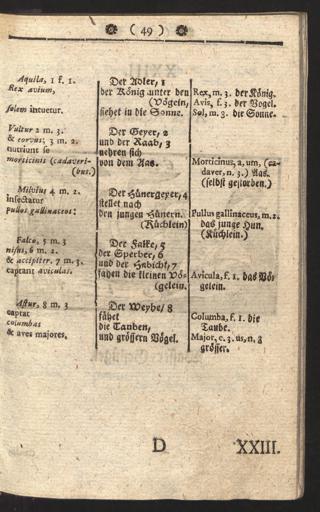 ( 49 )
Aquila, 1 f. 1.
Rex avium,
solem intuetur.
Vultur 2 m. 3.
& corvus; 3 m. 2.
nutriunt se
morticinis (cadaveri-
bus.)
Milvius 4 m. 2.
insectatur
pullos gallinaceos:
Falco, 5 m. 3
nisus, 6 m. 2.
& accipiter. 7 m. 3.
captant aviculas.
Astur, 8 m. 3
captat
columbas
& aves majores.
Der Adler, 1
der König unter den
(Vögeln,
siehet in die Sonne.
Der Geyer, 2
und der Raab, 3
nehren sich
von dem Aas.
Der Hünergeyer, 4
stellet nach
den jungen Hünern.
(Küchlein)
Der Falke, 5
der Sperber, 6
und der Habicht, 7
fahen die kleinen Vö-
(gelein.
Der Weyhe/ 8
fähet
die Tauben,
und grössern Vögel.
Rex, m. 3. der König.
Avis, f. 3. der Vogel.
Sol, m. 3. die Sonne.
Morticinus, a, um, (ca-
daver, n. 3.) Aas.
(selbst gestorben.)
Pullus gallinaceus, m. 2.
das junge Hun.
(Küchlein.)
Avicula, f. 1. das Vö-
gelein.
Columba, f. 1. die
Taube.
Major, c. 3. us, n. 3
grösser.
D
XXIII.